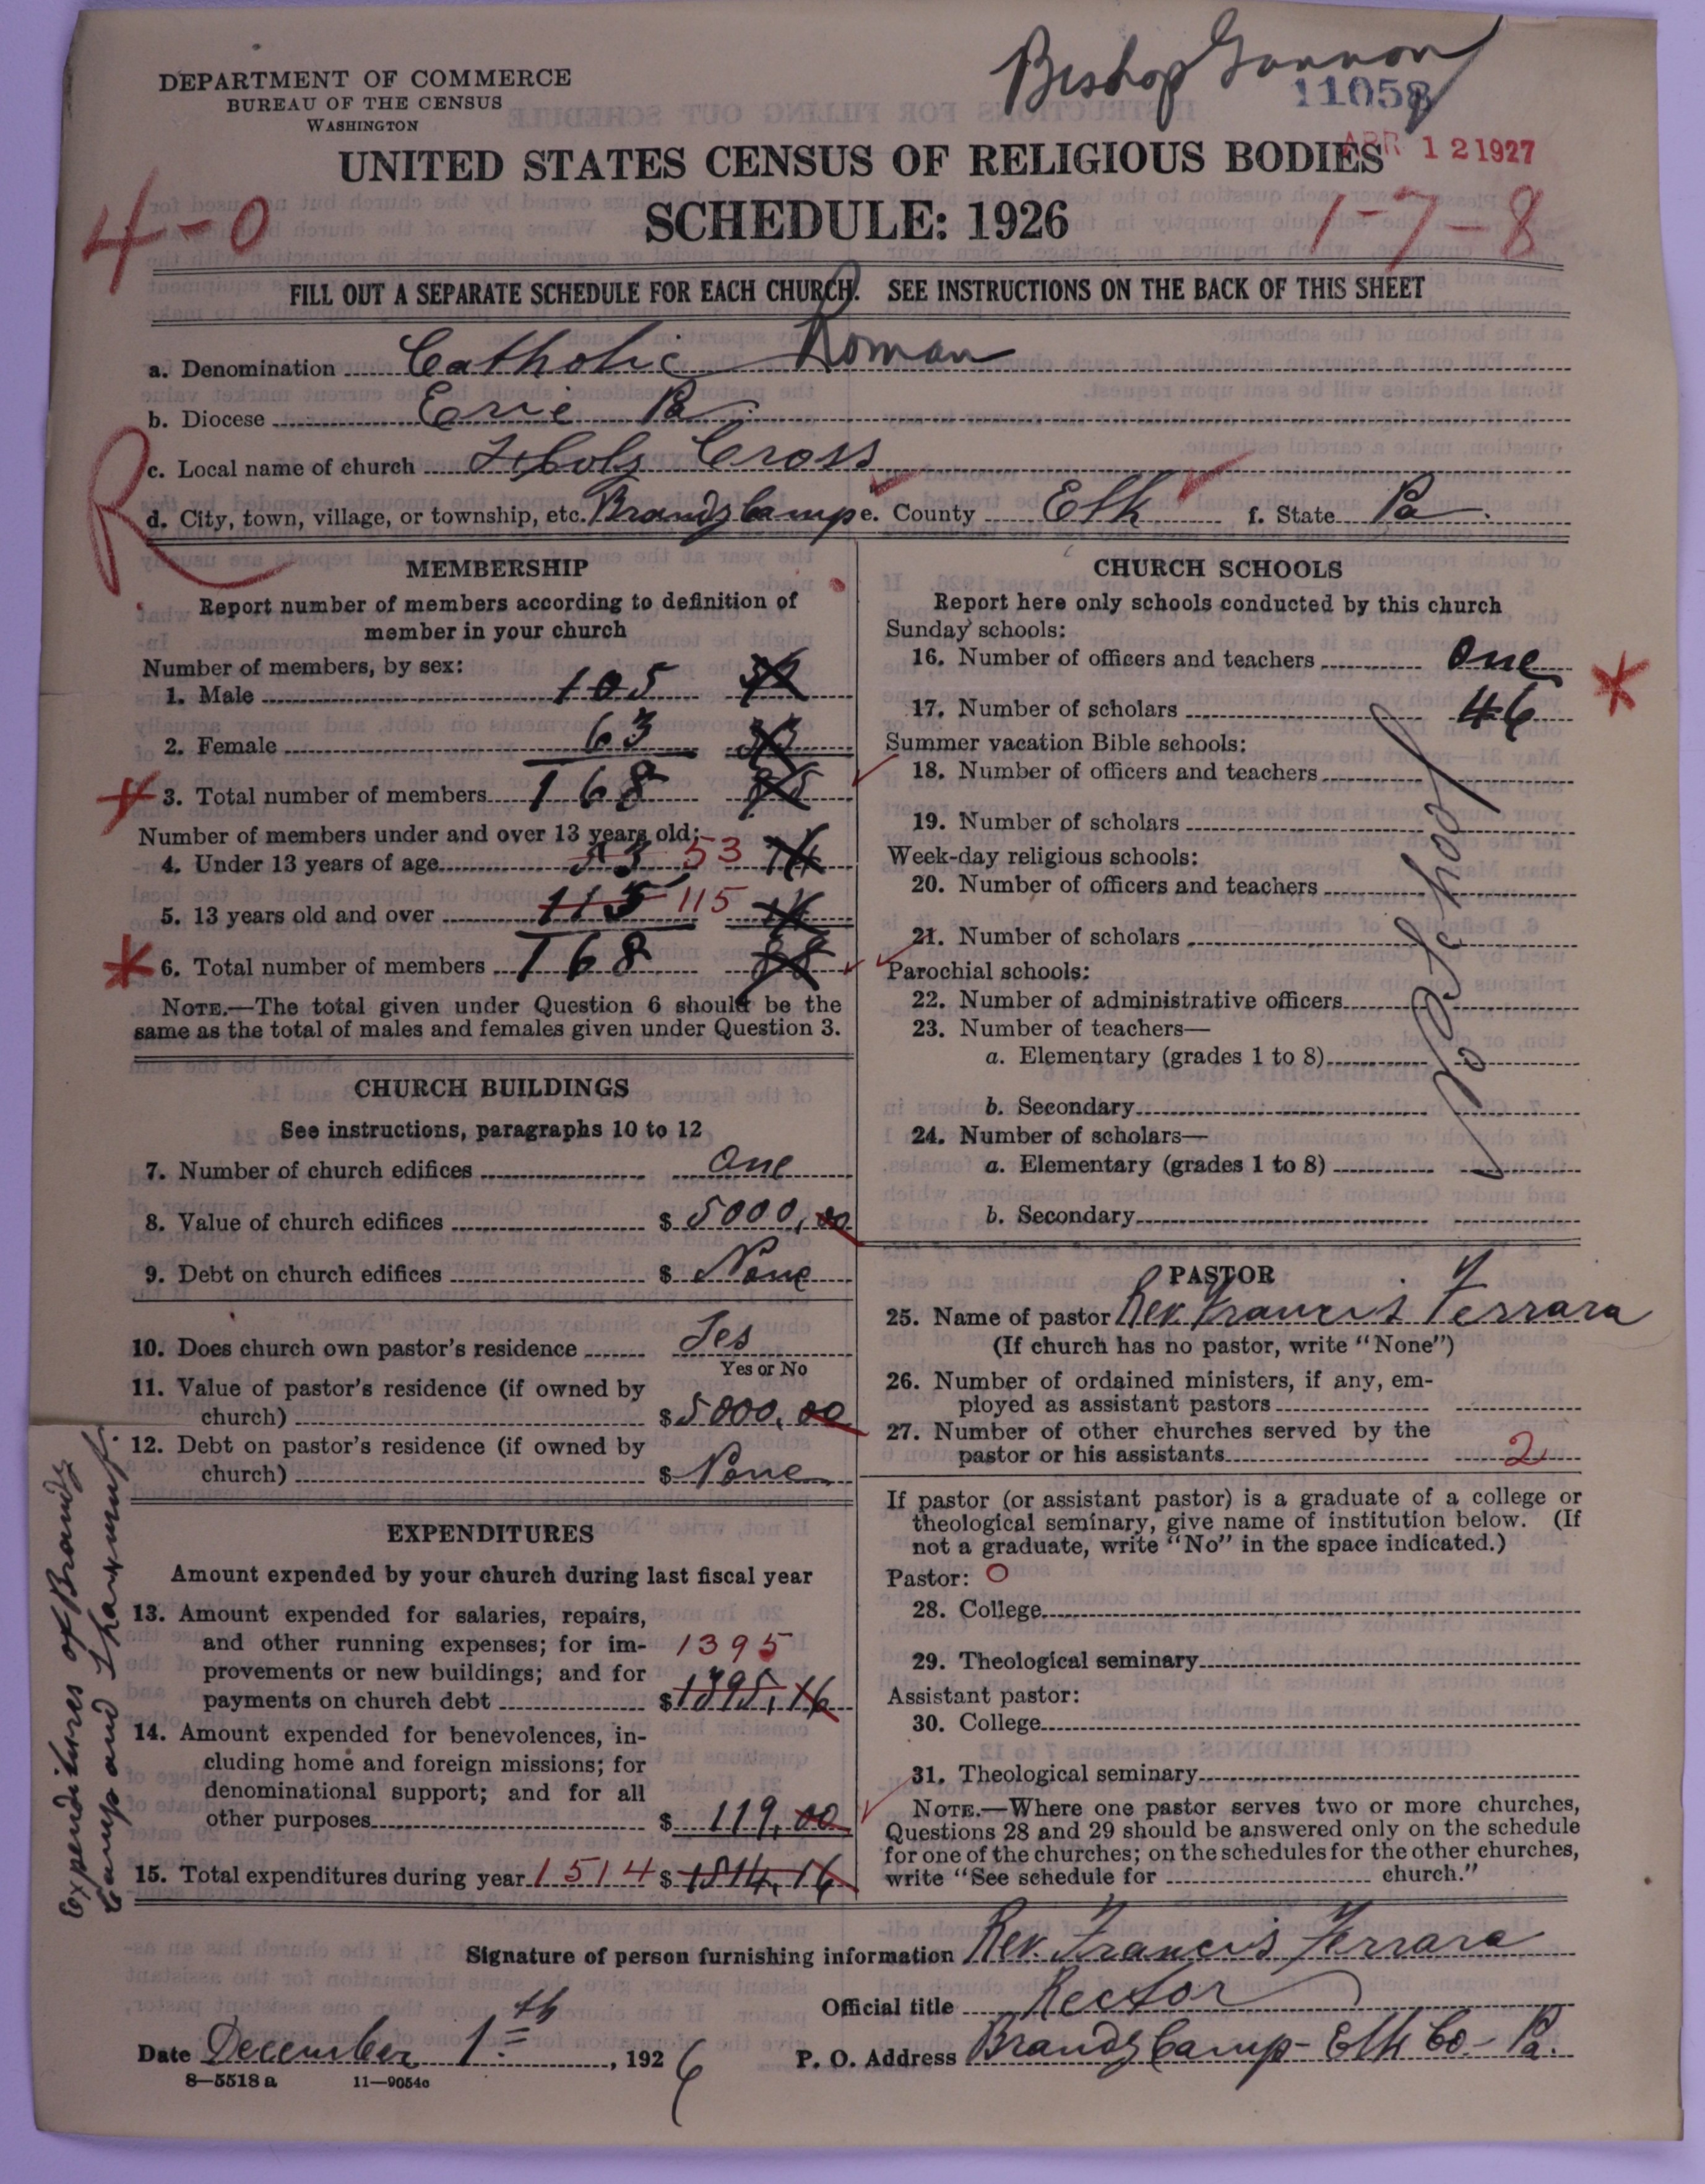 Bishop Gannon
11058
DEPARTMENT OF COMMERCE
BUREAU OF THE CENSUS
WASHINGTON
APR 12 1927
UNITED STATES CENSUS OF RELIGIOUS BODIES
4-0
SCHEDULE: 1926
1-7-8
FILL OUT A SEPARATE SCHEDULE FOR EACH CHURCH. SEE INSTRUCTIONS ON THE BACK OF THIS SHEET
a. Denomination Catholic Roman
b. Diocese Erie Pa.
c. Local name of church Holy Cross
R
d. City, town, village, or township, etc. Brandy Camp e. County Elk f. State Pa.
MEMBERSHIP
Report number of members according to definition of
member in your church
Number of members, by sex:
1. Male 105
2. Female 63
3. Total number of members 168
Number of members under and over 13 years old:
4. Under 13 years of age 53 53
5. 13 years old and over 115 115
6. Total number of members 168
NOTE.—The total given under Question 6 should be the
same as the total of males and females given under Question 3.
CHURCH BUILDINGS
See instructions, paragraphs 10 to 12
7. Number of church edifices One
8. Value of church edifices $ 5000,00
9. Debt on church edifices $ None
10. Does church own pastor's residence Yes
Yes or No
11. Value of pastor's residence (if owned by
church) $ 5000,00
12. Debt on pastor's residence (if owned by
church) $ None
EXPENDITURES
Amount expended by your church during last fiscal year
13. Amount expended for salaries, repairs,
and other running expenses; for im- 1395
provements or new buildings; and for
payments on church debt $ 1395,16
14. Amount expended for benevolences, in-
cluding home and foreign missions; for
denominational support; and for all
other purposes $ 119,00
15. Total expenditures during year 1514 $ 1514,16
Expenditures of Brandy
Camp and
CHURCH SCHOOLS
Report here only schools conducted by this church
Sunday schools:
16. Number of officers and teachers One
17. Number of scholars 46
Summer vacation Bible schools:
18. Number of officers and teachers
19. Number of scholars
Week-day religious schools:
20. Number of officers and teachers
21. Number of scholars
Parochial schools:
22. Number of administrative officers
23. Number of teachers—
a. Elementary (grades 1 to 8)
b. Secondary
24. Number of scholars—
a. Elementary (grades 1 to 8)
b. Secondary
No School
PASTOR
25. Name of pastor Rev. Francis Ferrara
(If church has no pastor, write "None")
26. Number of ordained ministers, if any, em-
ployed as assistant pastors
27. Number of other churches served by the
pastor or his assistants 2
If pastor (or assistant pastor) is a graduate of a college or
theological seminary, give name of institution below. (If
not a graduate, write "No" in the space indicated.)
Pastor: O
28. College
29. Theological seminary
Assistant pastor:
30. College
31. Theological seminary
NOTE.—Where one pastor serves two or more churches,
Questions 28 and 29 should be answered only on the schedule
for one of the churches; on the schedules for the other churches,
write "See schedule for church."
Signature of person furnishing information Rev. Francis Ferrara
Official title Rector
Date December 1th, 1926
P. O. Address Brandy Camp - Elk Co - Pa.
8—5518 a 11—9054c